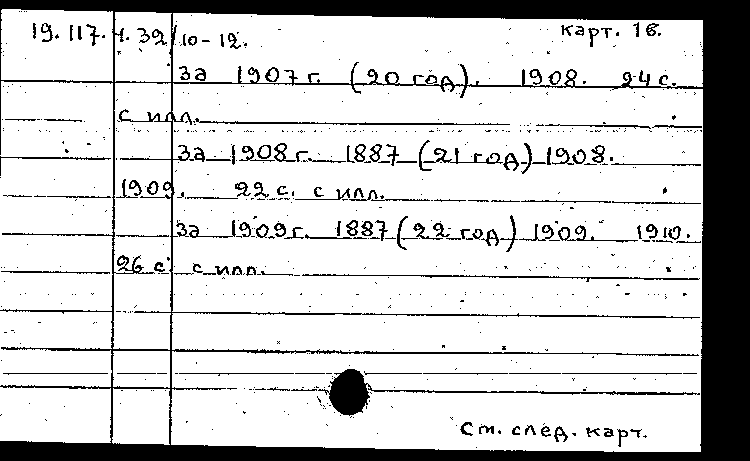 19.117.4.32/10-12. карт. 1б.
за 1907г. (20 год). 1908. 24 с.
с илл.
за 1908г. 1887 (21 год) 1908.
1909. 22 с. с илл.
за 1909г. 1887 (22 год) 1909. 1910.
26 с. с илл.
См. след. карт.